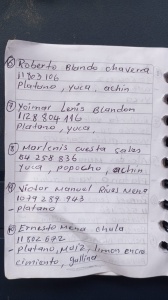 ⑥ Roberto Blando chaverra
11803106
Platano, yuca, achin
⑦ Yoimar Lenis Blandon
1128804116
Platano, yuca,
⑧ Marlenis cuesta salas
54258836
Yuca, popocho, achin
⑨ Victor Manuel Rivas Mena
1079289943
- platano
⑩ Ernesto Mena chula
11802672
- Platano, Maiz, limon
cimiento, gallina